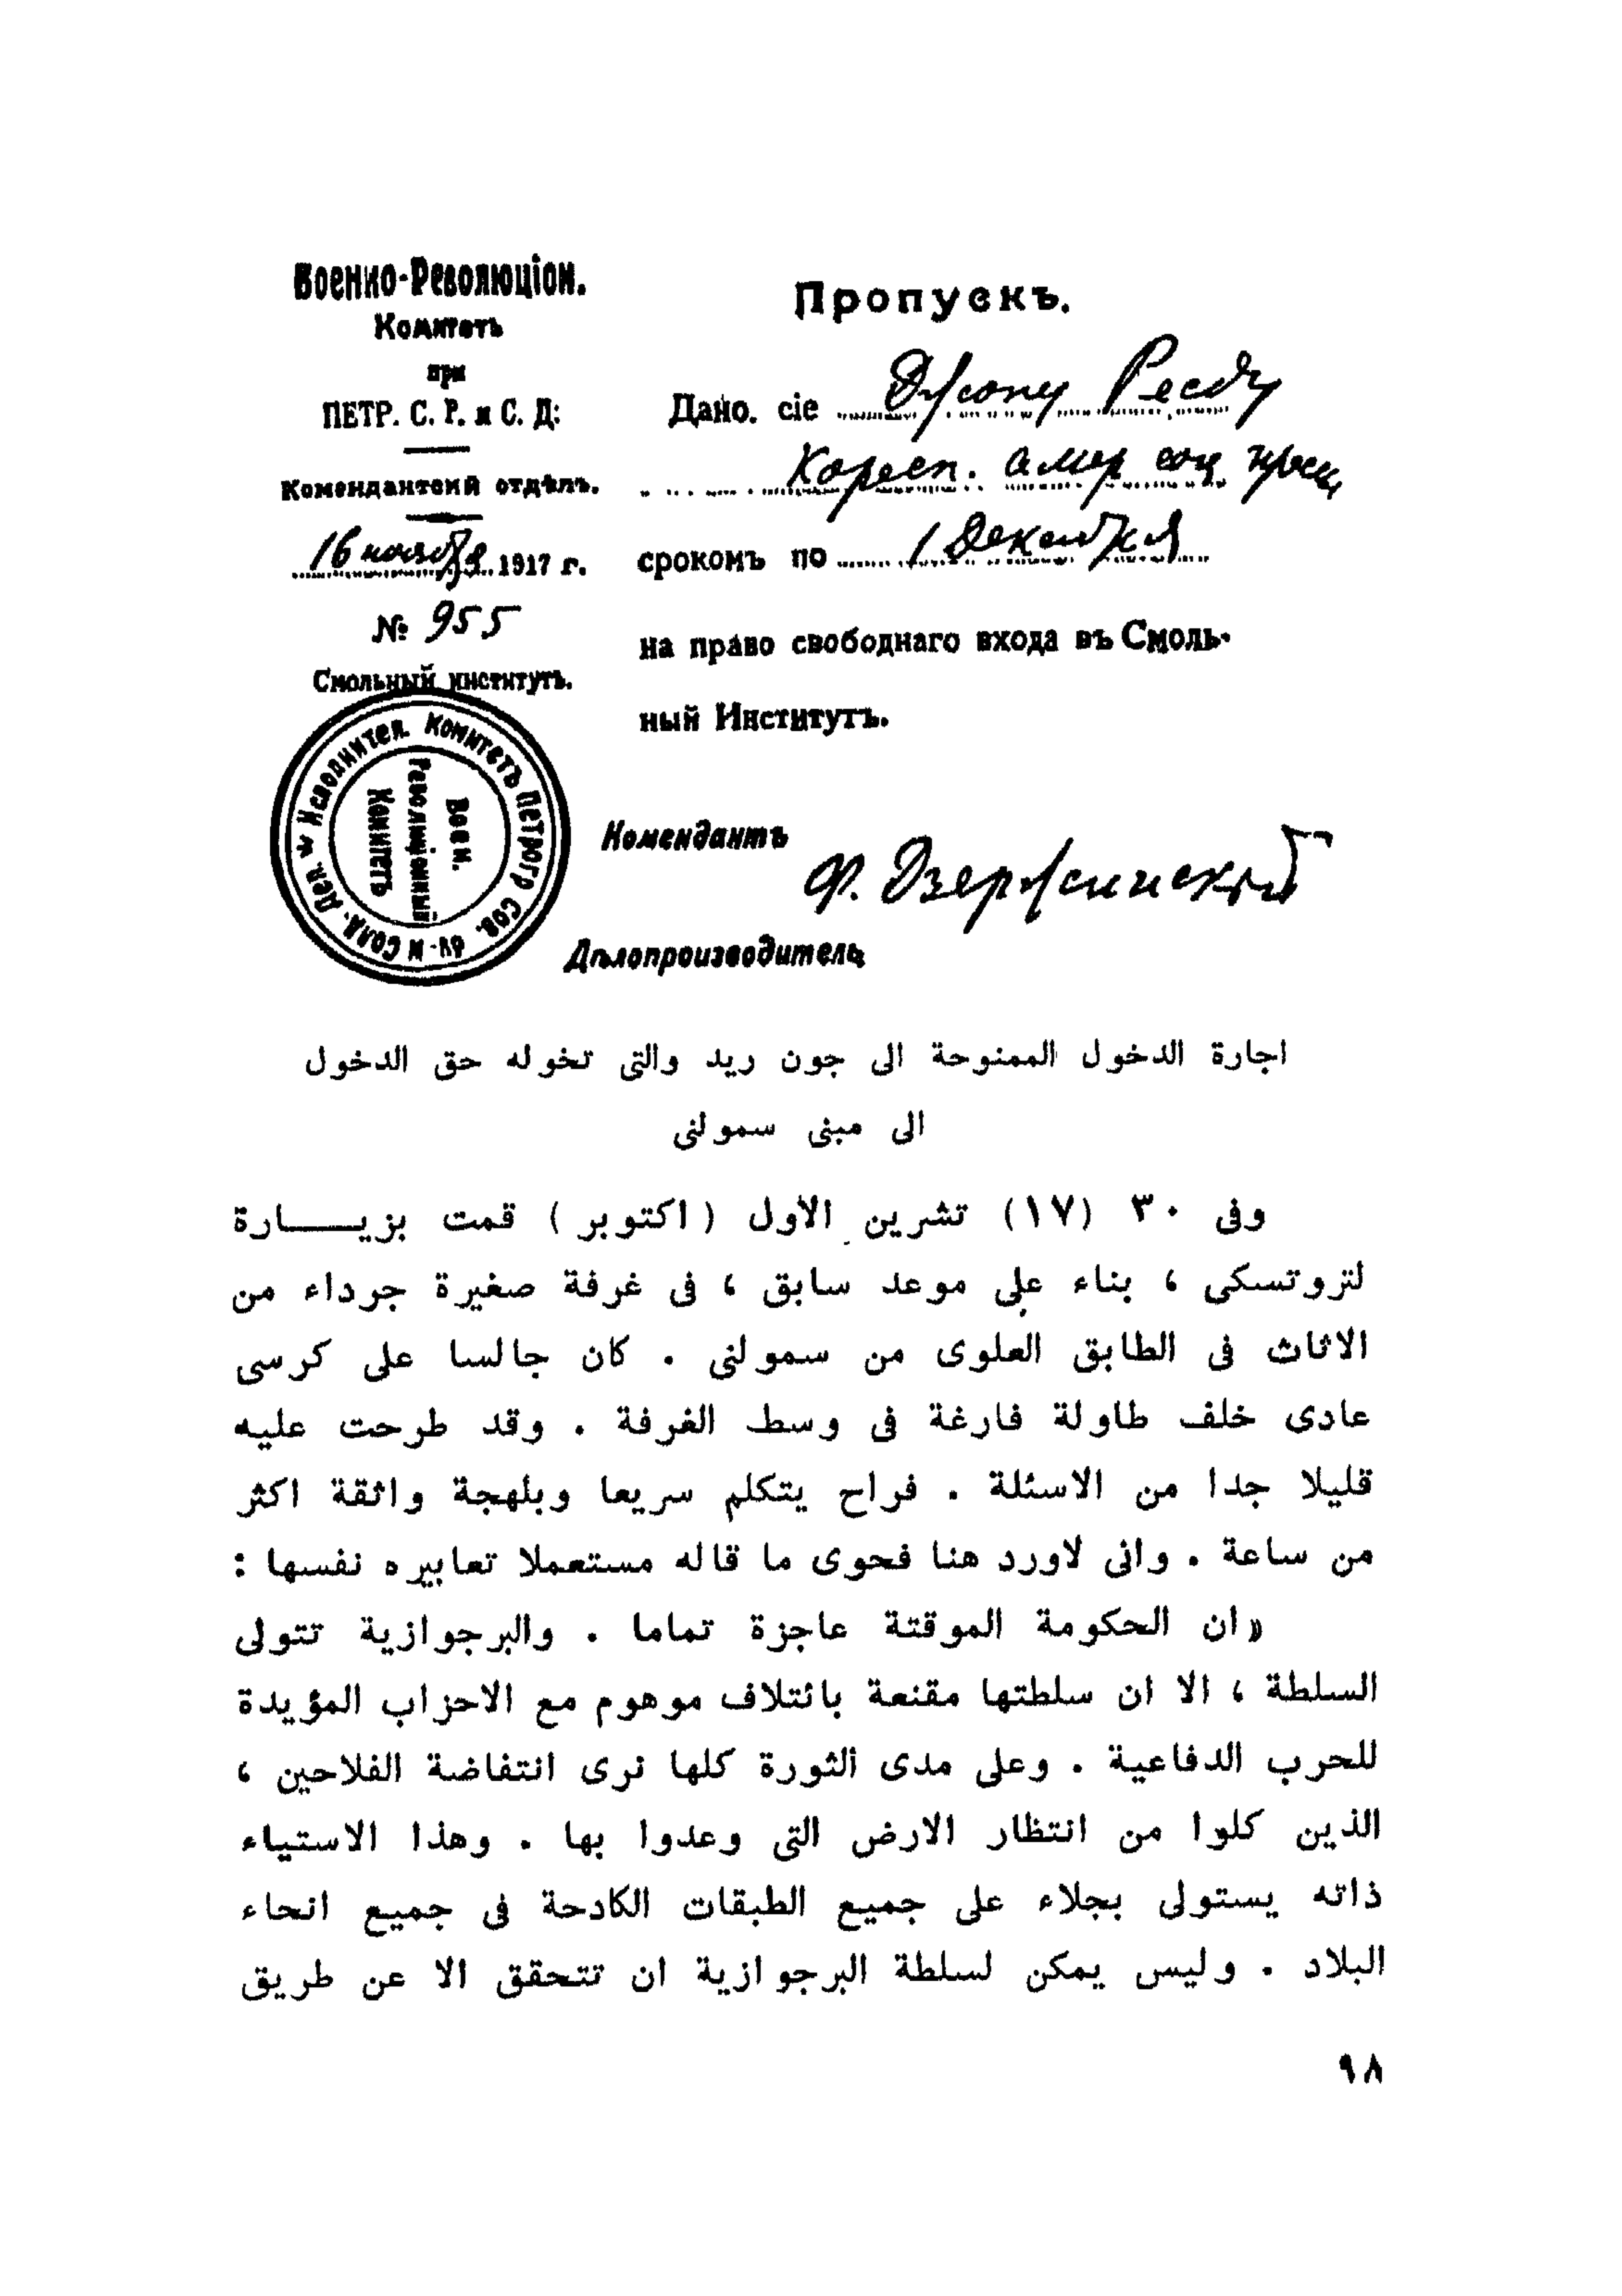 Военно-Революціон.
Комитетъ
при
ПЕТР. С. Р. и С. Д:
Комендантскій отдѣлъ.
16 ноября 1917 г.
№ 955
Смольный институтъ.
Исполнител. Комитетъ Петрогр Сов. и Солд. Деп.
Воен.
Революціонный
Комитетъ
Пропускъ.
Дано. сіе Джону Рееду
Кореcп. амер соц
срокомъ по 1 Декабря
на право свободнаго входа въ Смоль-
ный Институтъ.
Комендантъ
Ф. Дзержинскій
Дѣлопроизводитель
اجارة الدخول الممنوحة الى جون ريد والتى تخوله حق الدخول
الى مبنى سمولنى
وفى ٣٠ (١٧) تشرين الأول (اكتوبر) قمت بزيـــارة
لتروتسكى ، بناء على موعد سابق ، فى غرفة صغيرة جرداء من
الاثاث فى الطابق العلوى من سمولنى . كان جالسا على كرسى
عادى خلف طاولة فارغة فى وسط الغرفة . وقد طرحت عليه
قليلا جدا من الاسئلة . فراح يتكلم سريعا وبلهجة واثقة اكثر
من ساعة . وانى لاورد هنا فحوى ما قاله مستعملا تعابيره نفسها :
«ان الحكومة الموقتة عاجزة تماما . والبرجوازية تتولى
السلطة ، الا ان سلطتها مقنعة بائتلاف موهوم مع الاحزاب المؤيدة
للحرب الدفاعية . وعلى مدى الثورة كلها نرى انتفاضة الفلاحين ،
الذين كلوا من انتظار الارض التى وعدوا بها . وهذا الاستياء
ذاته يستولى بجلاء على جميع الطبقات الكادحة فى جميع انحاء
البلاد . وليس يمكن لسلطة البرجوازية ان تتحقق الا عن طريق
٩٨